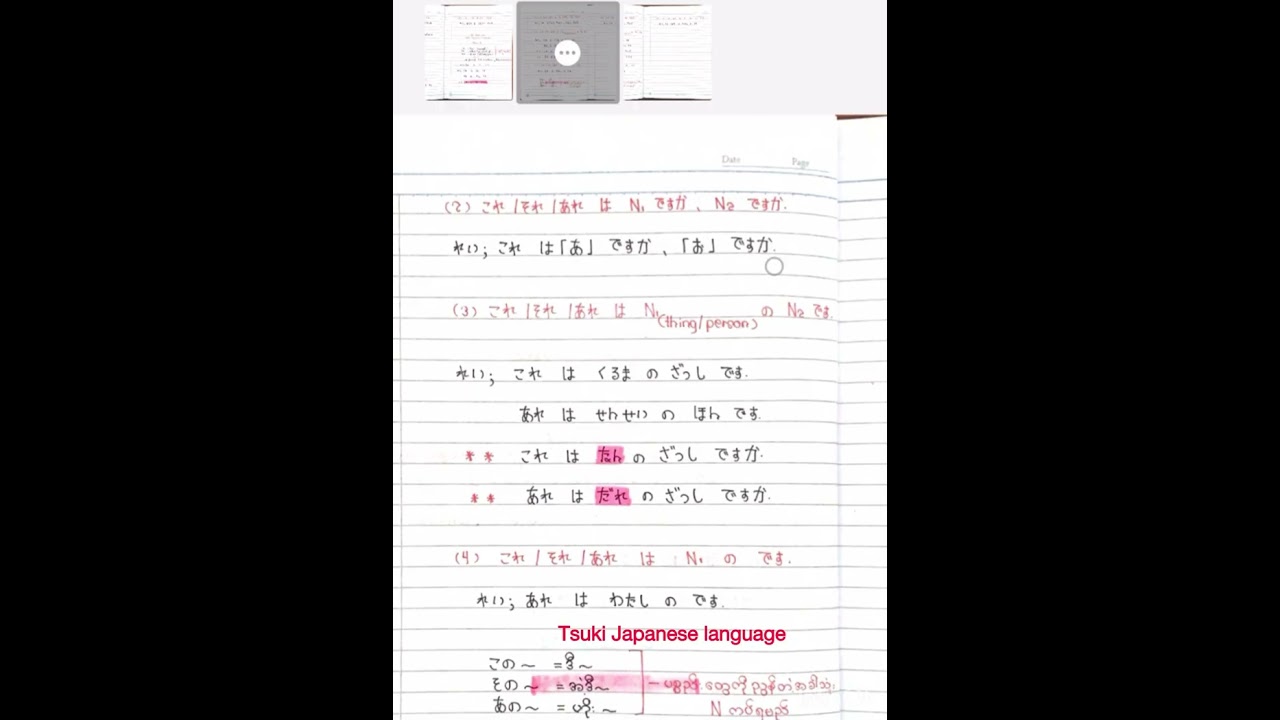 Date Page
(2) これ/それ/あれ は N₁ ですか、N₂ ですか.
れい; これ は「あ」ですか、「お」ですか.
(3) これ/それ/あれ は N₁(thing/person) の N₂ です.
れい; これ は くるま の ざっし です.
あれ は せんせい の ほん です.
** これ は たん の ざっし ですか.
** あれ は だれ の ざっし ですか.
(4) これ/それ/あれ は N₁ の です.
れい; あれ は わたし の です.
Tsuki Japanese language
この〜 = ဒီ〜
その〜 = အဲ့ဒီ〜 – ပစ္စည်း တွေကို ညွှန်တဲ့အခါသုံး
あの〜 = ဟိုး 〜 N ကပ်ရမည်